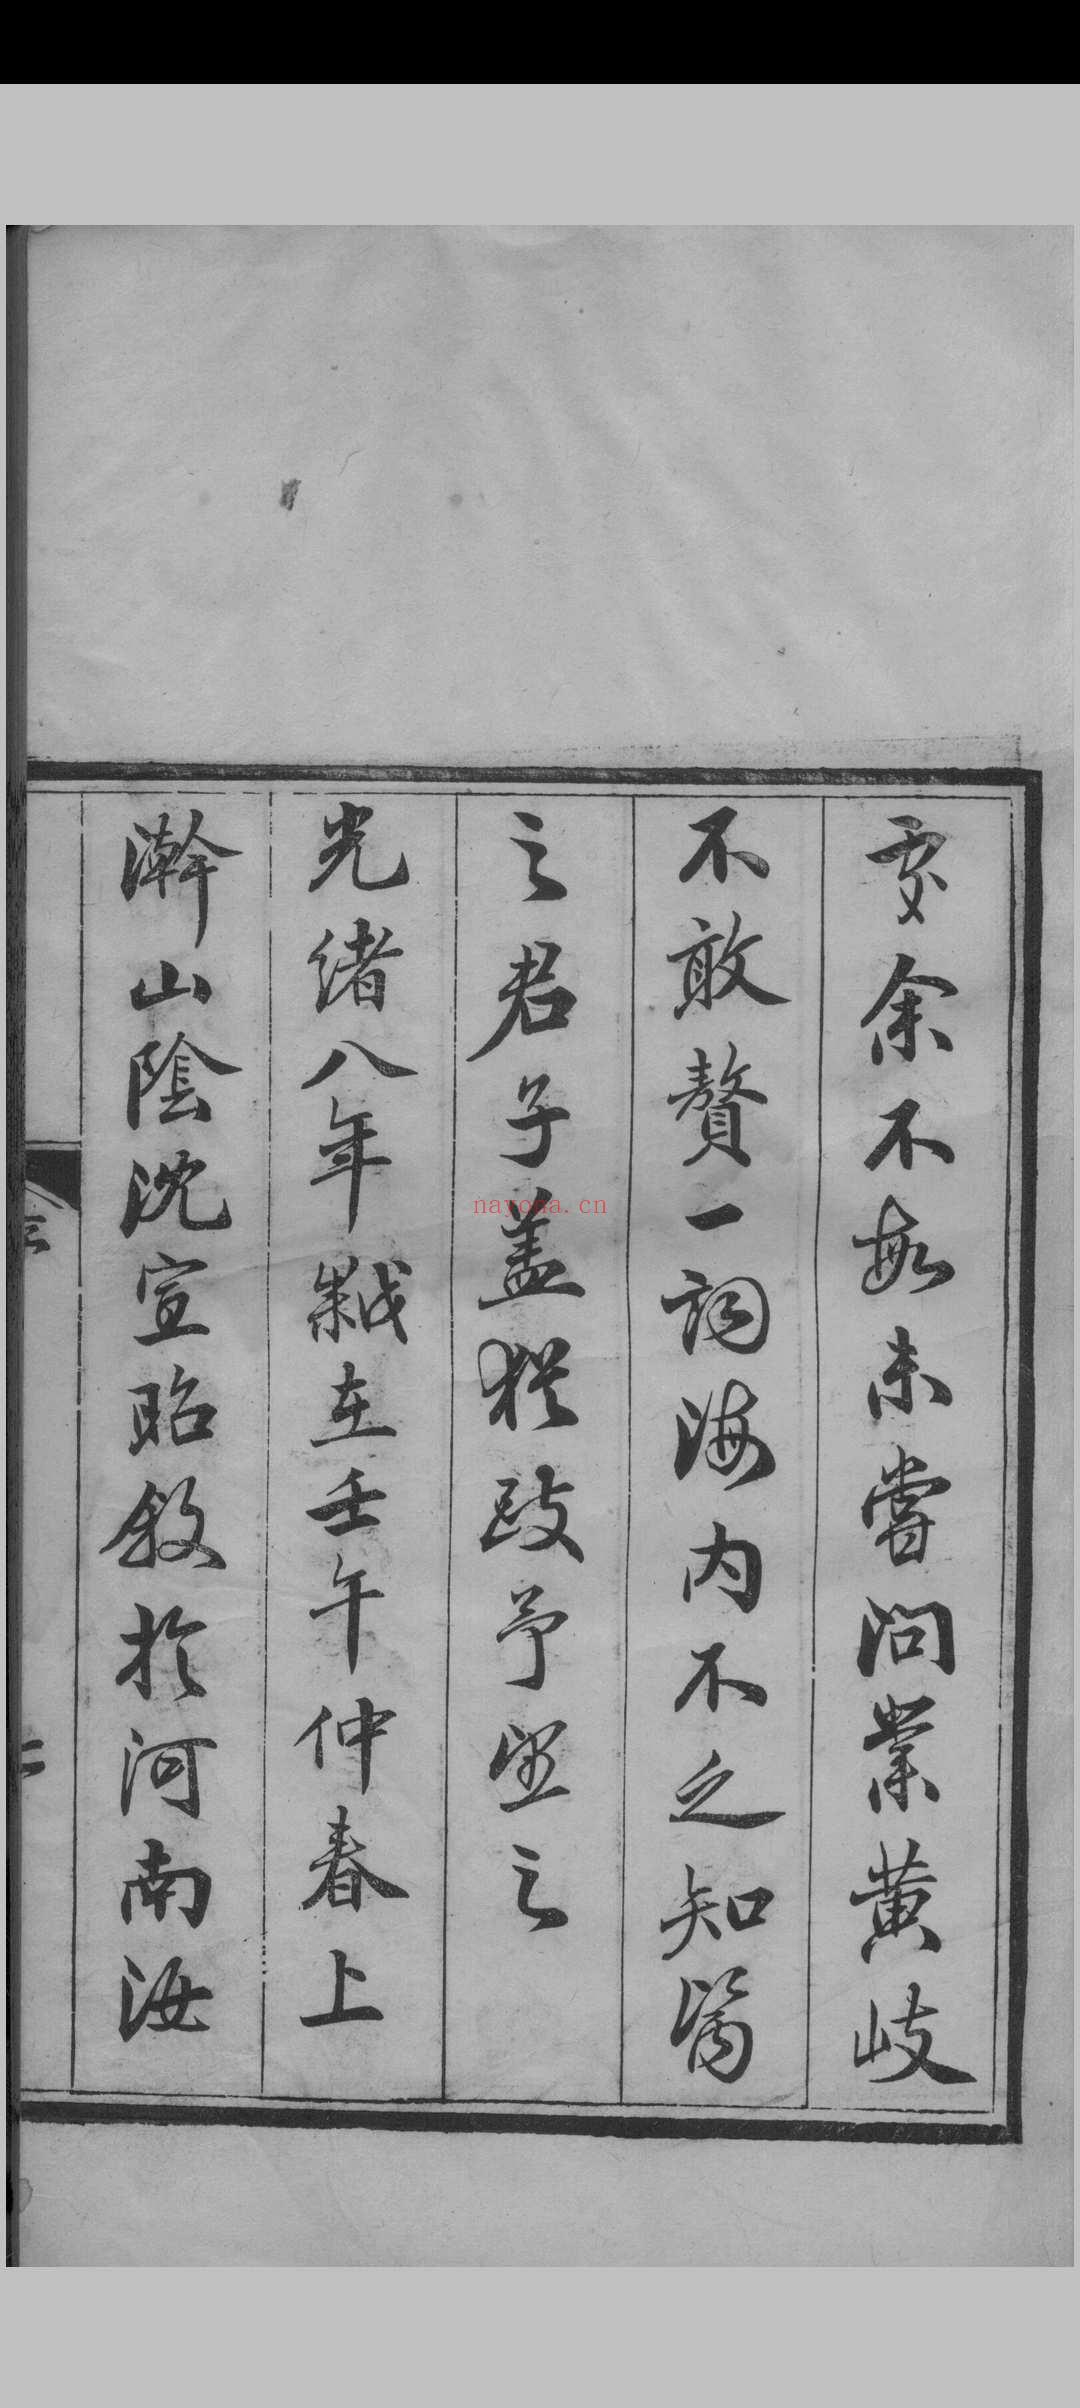 處余不敏未嘗問業黃岐
不敢贅一詞海内不乏知醫
之君子盖猶跂予望之
光緒八年歲在壬午仲春上
澣山陰沈宣昭敘於河南汝
nayona.cn